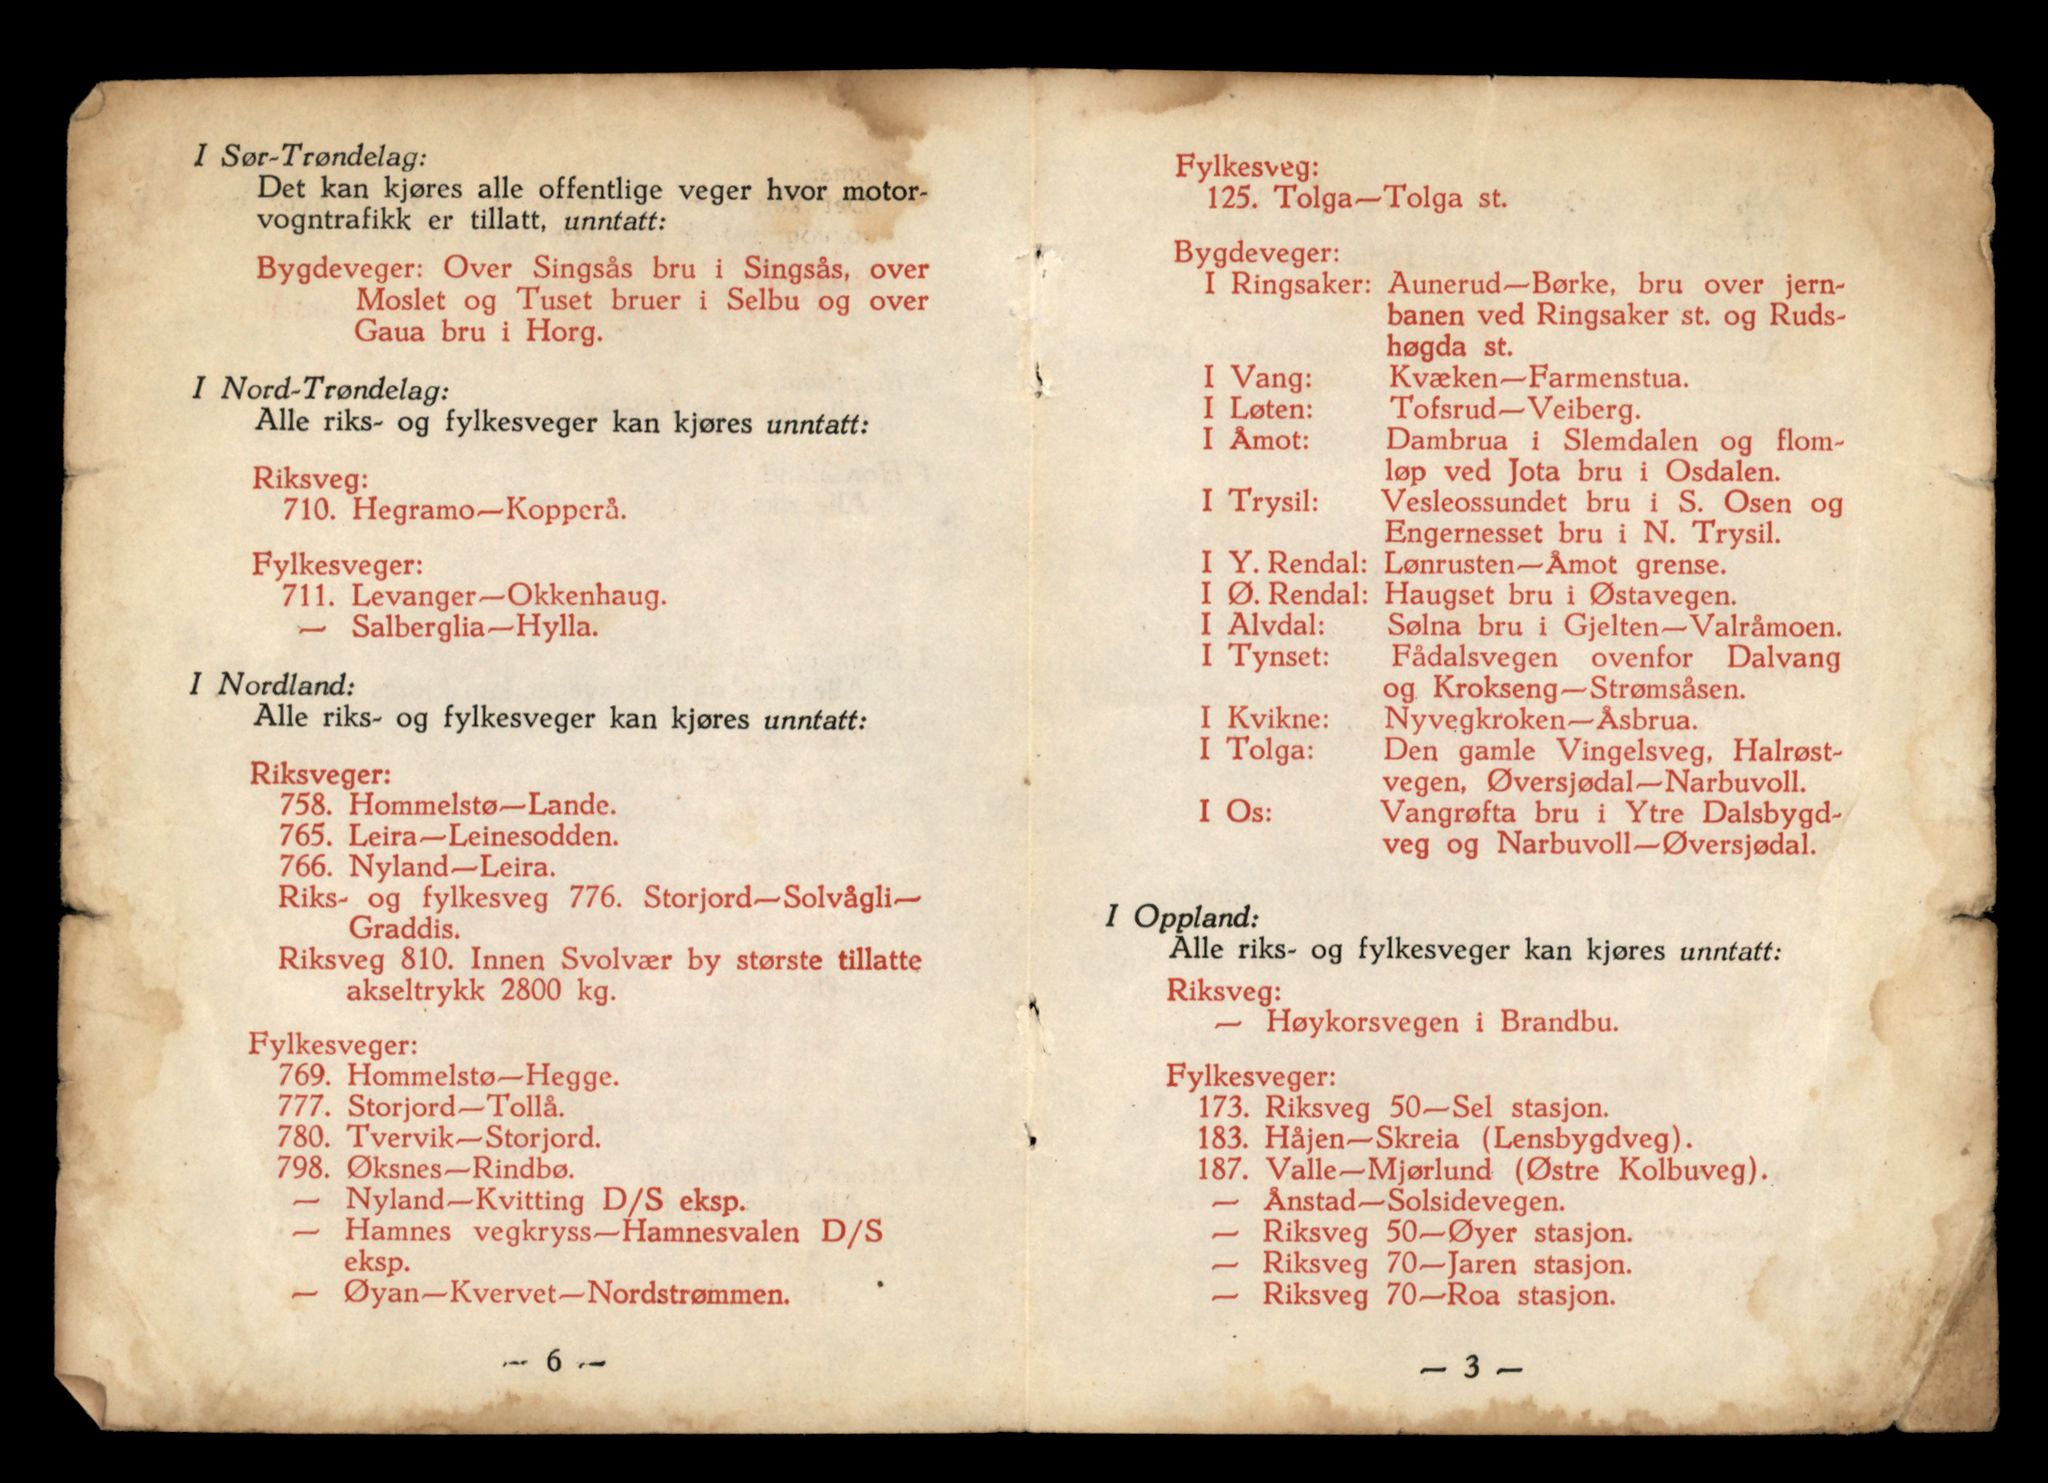 I Sør-Trøndelag:
Det kan kjøres alle offentlige veger hvor motor-
vogntrafikk er tillatt, unntatt:
Bygdeveger: Over Singsås bru i Singsås, over
Moslet og Tuset bruer i Selbu og over
Gaua bru i Horg.
I Nord-Trøndelag:
Alle riks- og fylkesveger kan kjøres unntatt:
Riksveg:
710. Hegramo—Kopperå.
Fylkesveger:
711. Levanger—Okkenhaug.
— Salberglia—Hylla.
I Nordland:
Alle riks- og fylkesveger kan kjøres unntatt:
Riksveger:
758. Hommelstø—Lande.
765. Leira—Leinesodden.
766. Nyland—Leira.
Riks- og fylkesveg 776. Storjord—Solvågli—
Graddis.
Riksveg 810. Innen Svolvær by største tillatte
akseltrykk 2800 kg.
Fylkesveger:
769. Hommelstø—Hegge.
777. Storjord—Tollå.
780. Tvervik—Storjord.
798. Øksnes—Rindbø.
— Nyland—Kvitting D/S eksp.
— Hamnes vegkryss—Hamnesvalen D/S
eksp.
— Øyan—Kvervet—Nordstrømmen.
— 6 —
Fylkesveg:
125. Tolga—Tolga st.
Bygdeveger:
I Ringsaker: Aunerud—Børke, bru over jern-
banen ved Ringsaker st. og Ruds-
høgda st.
I Vang: Kvæken—Farmenstua.
I Løten: Tofsrud—Veiberg.
I Åmot: Dambrua i Slemdalen og flom-
løp ved Jota bru i Osdalen.
I Trysil: Vesleossundet bru i S. Osen og
Engernesset bru i N. Trysil.
I Y. Rendal: Lønrusten—Åmot grense.
I Ø. Rendal: Haugset bru i Østavegen.
I Alvdal: Sølna bru i Gjelten—Valråmoen.
I Tynset: Fådalsvegen ovenfor Dalvang
og Krokseng—Strømsåsen.
I Kvikne: Nyvegkroken—Åsbrua.
I Tolga: Den gamle Vingelsveg, Halrøst-
vegen, Øversjødal—Narbuvoll.
I Os: Vangrøfta bru i Ytre Dalsbygd-
veg og Narbuvoll—Øversjødal.
I Oppland:
Alle riks- og fylkesveger kan kjøres unntatt:
Riksveg:
— Høykorsvegen i Brandbu.
Fylkesveger:
173. Riksveg 50—Sel stasjon.
183. Håjen—Skreia (Lensbygdveg).
187. Valle—Mjørlund (Østre Kolbuveg).
— Ånstad—Solsidevegen.
— Riksveg 50—Øyer stasjon.
— Riksveg 70—Jaren stasjon.
— Riksveg 70—Roa stasjon.
— 3 —